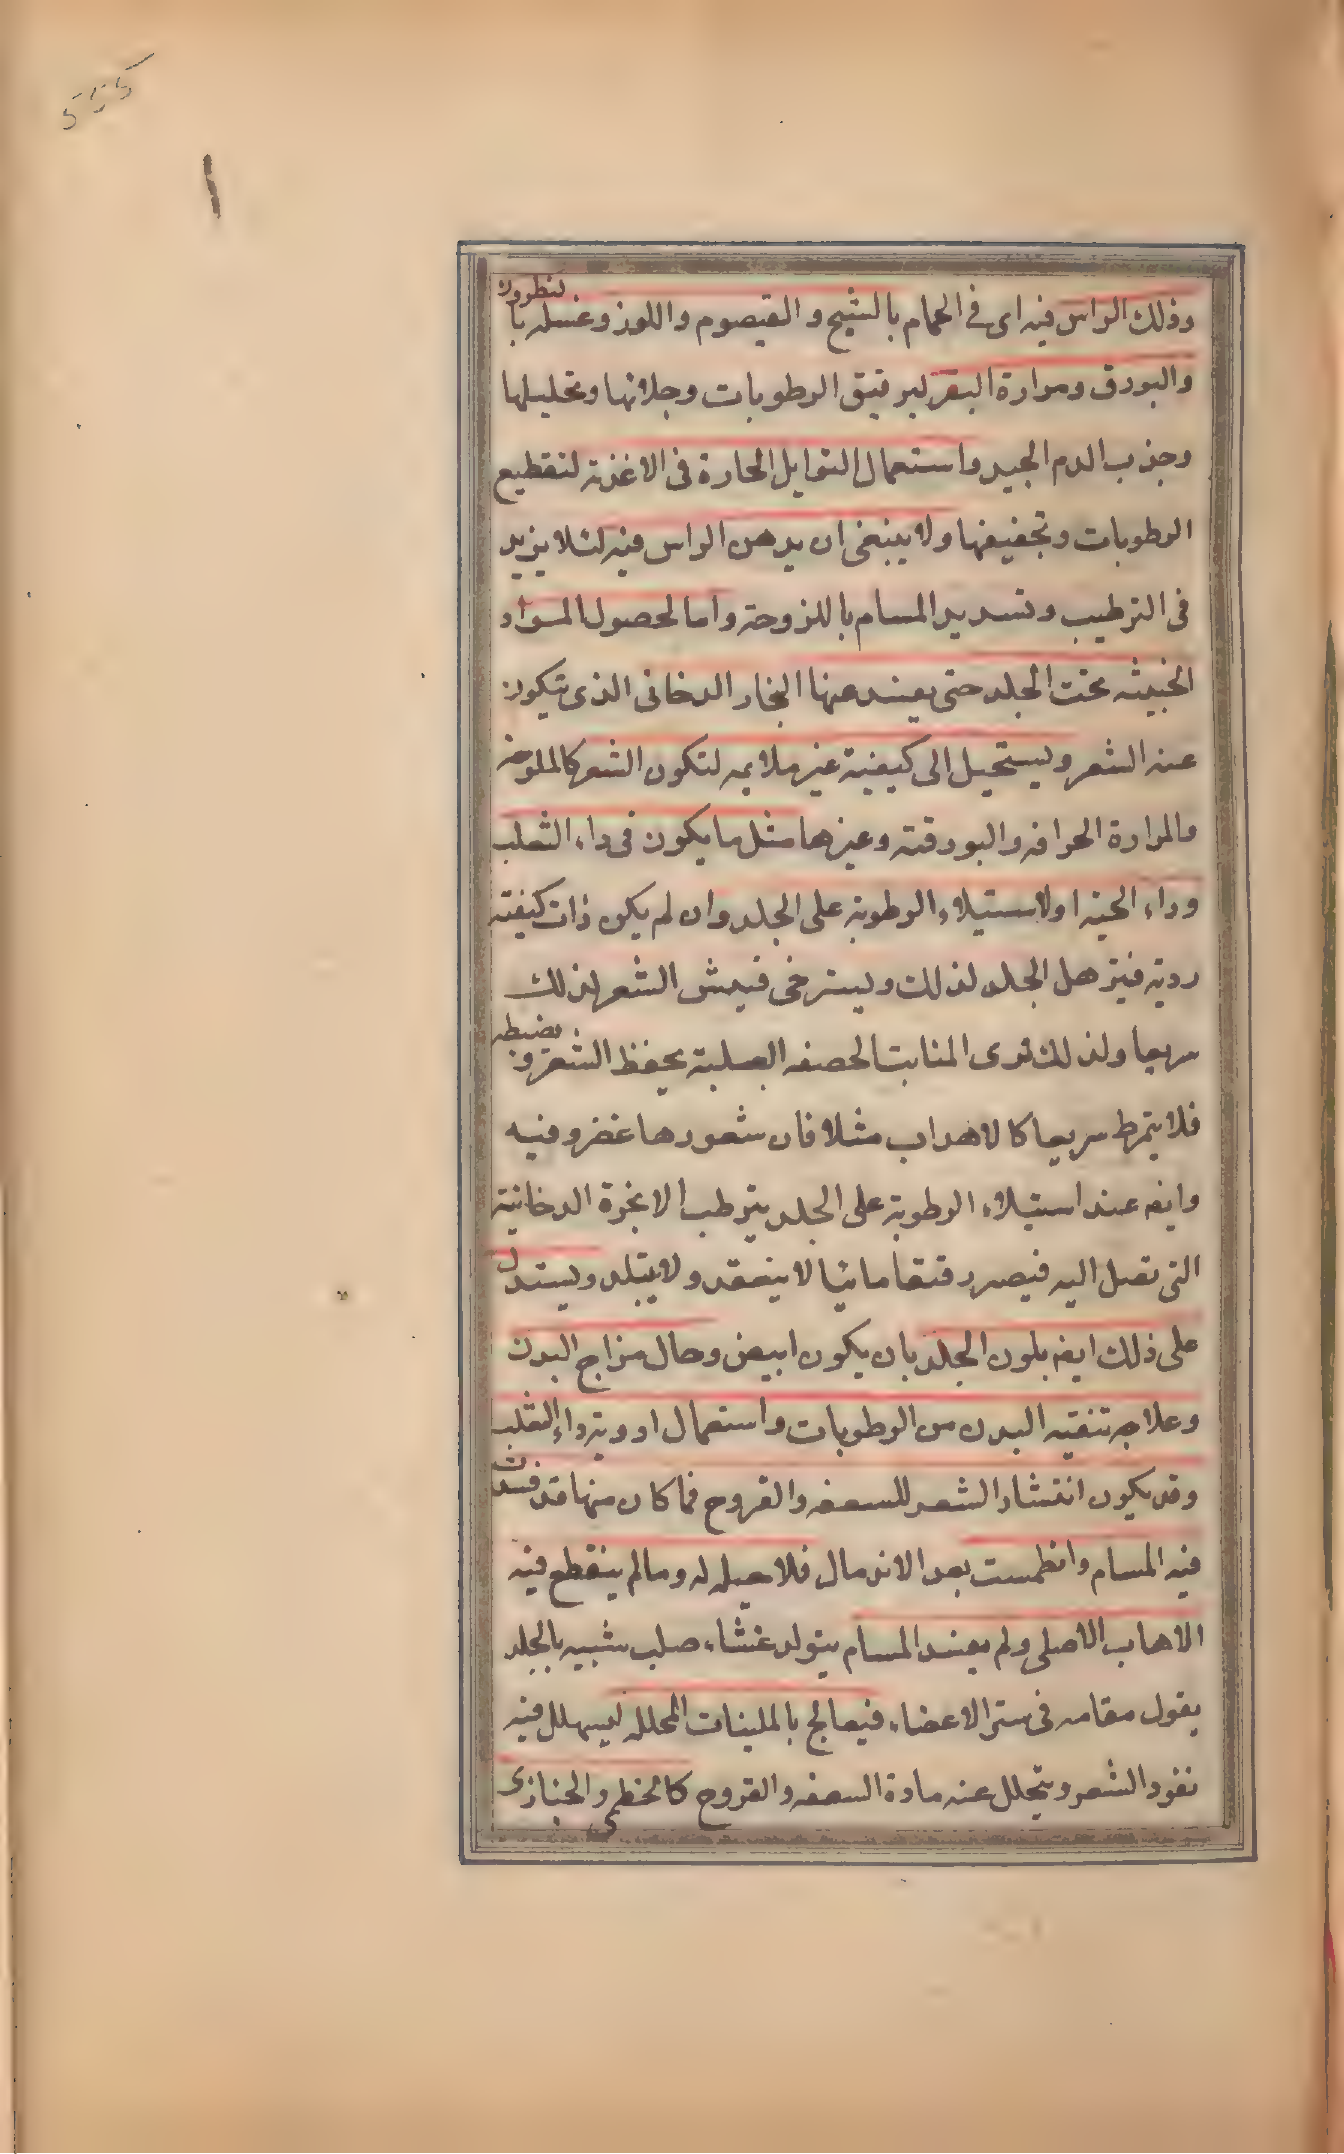 وذلك الراس فيه اى فى الحمام بالشيح و القيصوم واللوز وغسله بالنطرون
والبورق ومرارة البقر لير قيق الرطوبات وجلائها وتحليلها
وجذب الدم الجيد واستعمال التوابل الحارة فى الاغذية لتقطيع
الرطوبات وتجفيفها ولا ينبغى ان يدهن الراس فيه لئلا يزيد
فى الترطيب وتسديد المسام باللزوجة واما لحصول المواد
الخبيثه تحت الجلد حتى يفسد عنها البخار الدخانى الذى يتكون
عنه الشعر ويستحيل الى كيفية غير ملايمه لتكون الشعر كالملوحه
والمرارة الحرافه والبورقية وغيرها مثل ما يكون فى داء الثعلب
وداء الحيه او لاستيلاء الرطوبة على الجلد وان لم يكن ذات كيفية
ردية فيترهل الجلد لذلك ويسترخى فيمش الشعر لذلك
سريعا ولذلك نرى المنابت الحصفه الصلبة يحفظ الشعر ويضبطه
فلا يتمرط سريعا كالاهداب مثلا فان شعورها غضروفيه
وايضه عند استيلاء الرطوبة على الجلد يترطب الابخرة الدخانية
التى تصل اليه فيصير رقيقا مائيا لا ينعقد ولا يتلبد ويستدل
على ذلك ايضه بلون الجلد بان يكون ابيض وحال مزاج البدن
وعلاجه تنقيه البدن من الرطوبات واستعمال ادوية داء الثعلب
وقد يكون انتشار الشعر للسعفه والقروح فما كان منها قد فسدت
فيه المسام وانطمست بعد الاندمال فلا حيله له وما لم ينقطع فيه
الاهاب الاصلى ولم يفسد المسام يتولد غشاء صلب شبيه بالجلد
يقول مقامه فى ستر الاعضاء فيعالج بالملينات المحلله ليسهلل فيه
نفود الشعر ويتحلل عنه مادة السعفه والقروح كالخطمى والخبازى